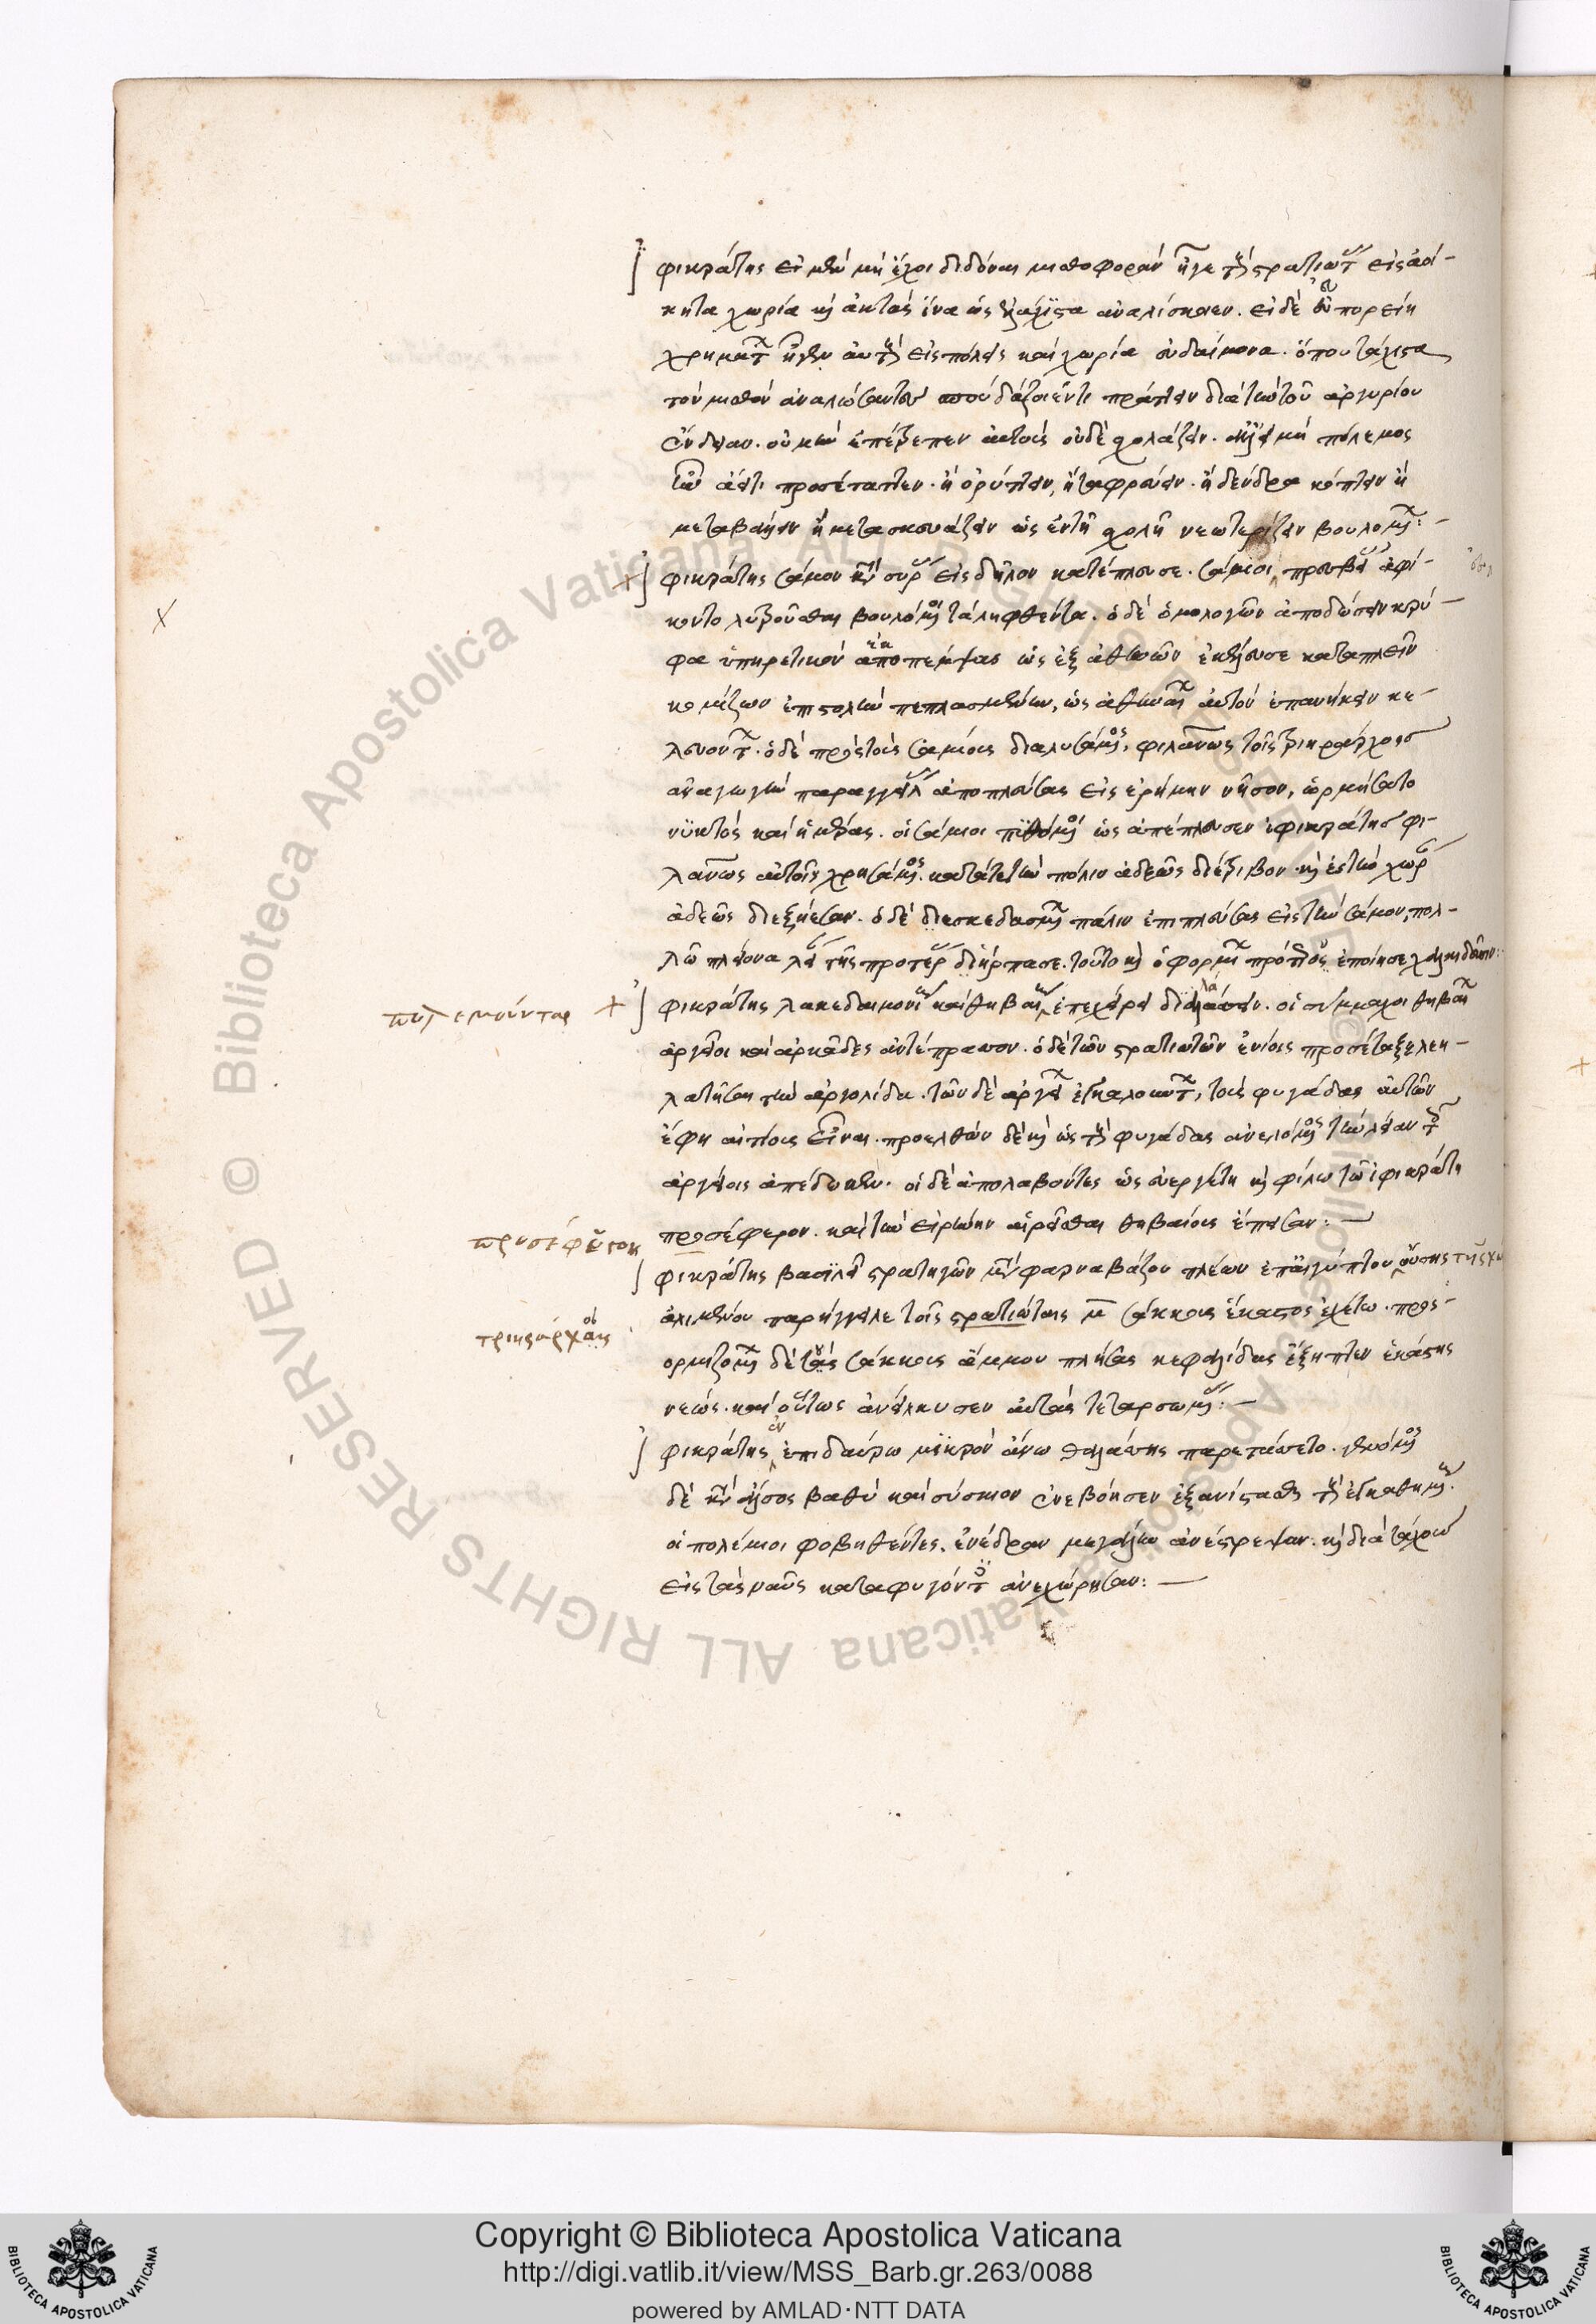 φικράτης εἰ μὲν μὴ ἔχοι διδόναι μισθοφορὰν ἦγε τοὺς στρατιώτας εἰς ἀοί-
κητα χωρία καὶ ἀκτὰς ἵνα ὡς ἐλάχιστα ἀναλίσκοιεν. εἰ δὲ εὐποροίη
χρημάτων ἦγεν αὐτοὺς εἰς πόλεις καὶ χωρία εὐδαίμονα. ὅπου τάχιστα
τὸν μισθὸν ἀναλώσαντες σπουδάζοιέν τι πράττειν διὰ τὴν τοῦ ἀργυρίου
ἔνδειαν. οὐ μὴν ἐπέτρεπεν αὐτοῖς οὐδὲ σχολάζειν. ἀλλ' εἰ μὴ πόλεμος
ἦν ἀεί τι προσέταττεν. ἢ ὀρύττειν, ἢ ταφρεύειν. ἢ δένδρα κόπτειν ἢ
μεταβαίνειν ἢ μετασκευάζειν ὡς ἐν τῇ σχολῇ νεωτερίζειν βουλομένων:-
φικράτης σάμον εἰς δῆλον κατέπλευσε. σάμιοι πρέσβεις ἀφί-
κοντο λυτροῦσθαι βουλόμενοι τὰ ληφθέντα. ὁ δὲ ὁμολογῶν ἀποδώσειν κρύ-
φα ὑπηρετικὸν ἀποπέμψας ὡς ἐξ ἀθηνῶν ἐκέλευσε καταπλεῖν
κομίζων ἐπιστολὴν πεπλασμένην, ὡς ἀθηναίων αὐτὸν ἐπανήκειν κε-
λευόντων. ὁ δὲ πρὸς τοὺς σαμίους διαλυσάμενος, φιλανθρώπως τοῖς τριηράρχοις
ἀναγωγὴν παραγγείλας ἀποπλεύσας εἰς ἐρήμην νῆσον, ὡρμήσατο
νυκτὸς καὶ ἡμέρας. οἱ σάμιοι πυθόμενοι ὡς ἀπέπλευσεν ἰφικράτης φι-
λανθρώπως αὐτοῖς χρησάμενος. κατά τε τὴν πόλιν ἀδεῶς διέτριβον καὶ ἐς τὴν χώραν
ἀδεῶς διεξῄεσαν. ὁ δὲ διεσκεδασμένων πάλιν ἐπιπλεύσας εἰς τὴν σάμον, πολ-
λῷ πλείονα λείαν τῆς προτέρας διήρπασε. τοῦτο καὶ ὁ φορμίων πρότερος ἐποίησε χαλκιδεῦσιν:
φικράτης λακεδαιμονίους καὶ θηβαίους ἐπεχείρει διαλλάσσειν. οἱ σύμμαχοι θηβαίων
ἀργεῖοι καὶ ἀρκάδες ἀντέπραττον. ὁ δὲ τῶν στρατιωτῶν ἐνίοις προσέταξε λεη-
λατῆσαι τὴν ἀργολίδα. τῶν δὲ ἀργείων ἐγκαλούντων, τοὺς φυγάδας αὐτῶν
ἔφη αἰτίους εἶναι. προελθὼν δὲ καὶ ὡς τοὺς φυγάδας ἀνελόμενος τὴν λείαν τοῖς
ἀργείοις ἀπέδωκεν. οἱ δὲ ἀπολαβόντες ὡς εὐεργέτῃ καὶ φίλῳ τῷ ἰφικράτῃ
προσέφερον. καὶ τὴν εἰρήνην αἱρεῖσθαι θηβαίους ἔπεισαν:-
φικράτης βασιλεῖ στρατηγῶν μετὰ φαρναβάζου πλέων ἐπ' αἴγυπτον, οὔσης τῆς χώ
ἀλιμένου παρήγγειλε τοῖς στρατιώταις μ σάκκους ἕκαστος ἐχέτω. προσ-
ορμιζομένων δὲ τοὺς σάκκους ἄμμου πλήσας κεφαλίδας ἐξῆπτεν ἑκάστης
νεώς. καὶ οὕτως ἀνείλκυσεν αὐτὰς τεταρσωμένας:-
φικράτης ἐν ἐπιδαύρῳ μικρὸν ἄνω θαλάττης παρετάττετο. γενόμενος
δὲ κατὰ ἄλσος βαθὺ καὶ σύσκιον ἀνεβόησεν ἐξανίστασθε τοὺς ἐγκαθημένους.
οἱ πολέμιοι φοβηθέντες ἐνέδραν μεγάλην ἀνέστρεψαν. καὶ διὰ τάχους
εἰς τὰς ναῦς καταφυγόντες ἀνεχώρησαν:-
τριηράρχοις
Copyright © Biblioteca Apostolica Vaticana
http://digi.vatlib.it/view/MSS_Barb.gr.263/0088
powered by AMLAD·NTT DATA
BIBLIOTECA APOSTOLICA VATICANA
BIBLIOTECA APOSTOLICA VATICANA
© Biblioteca Apostolica Vaticana ALL RIGHTS RESERVED
© Biblioteca Apostolica Vaticana ALL RIGHTS RESERVED